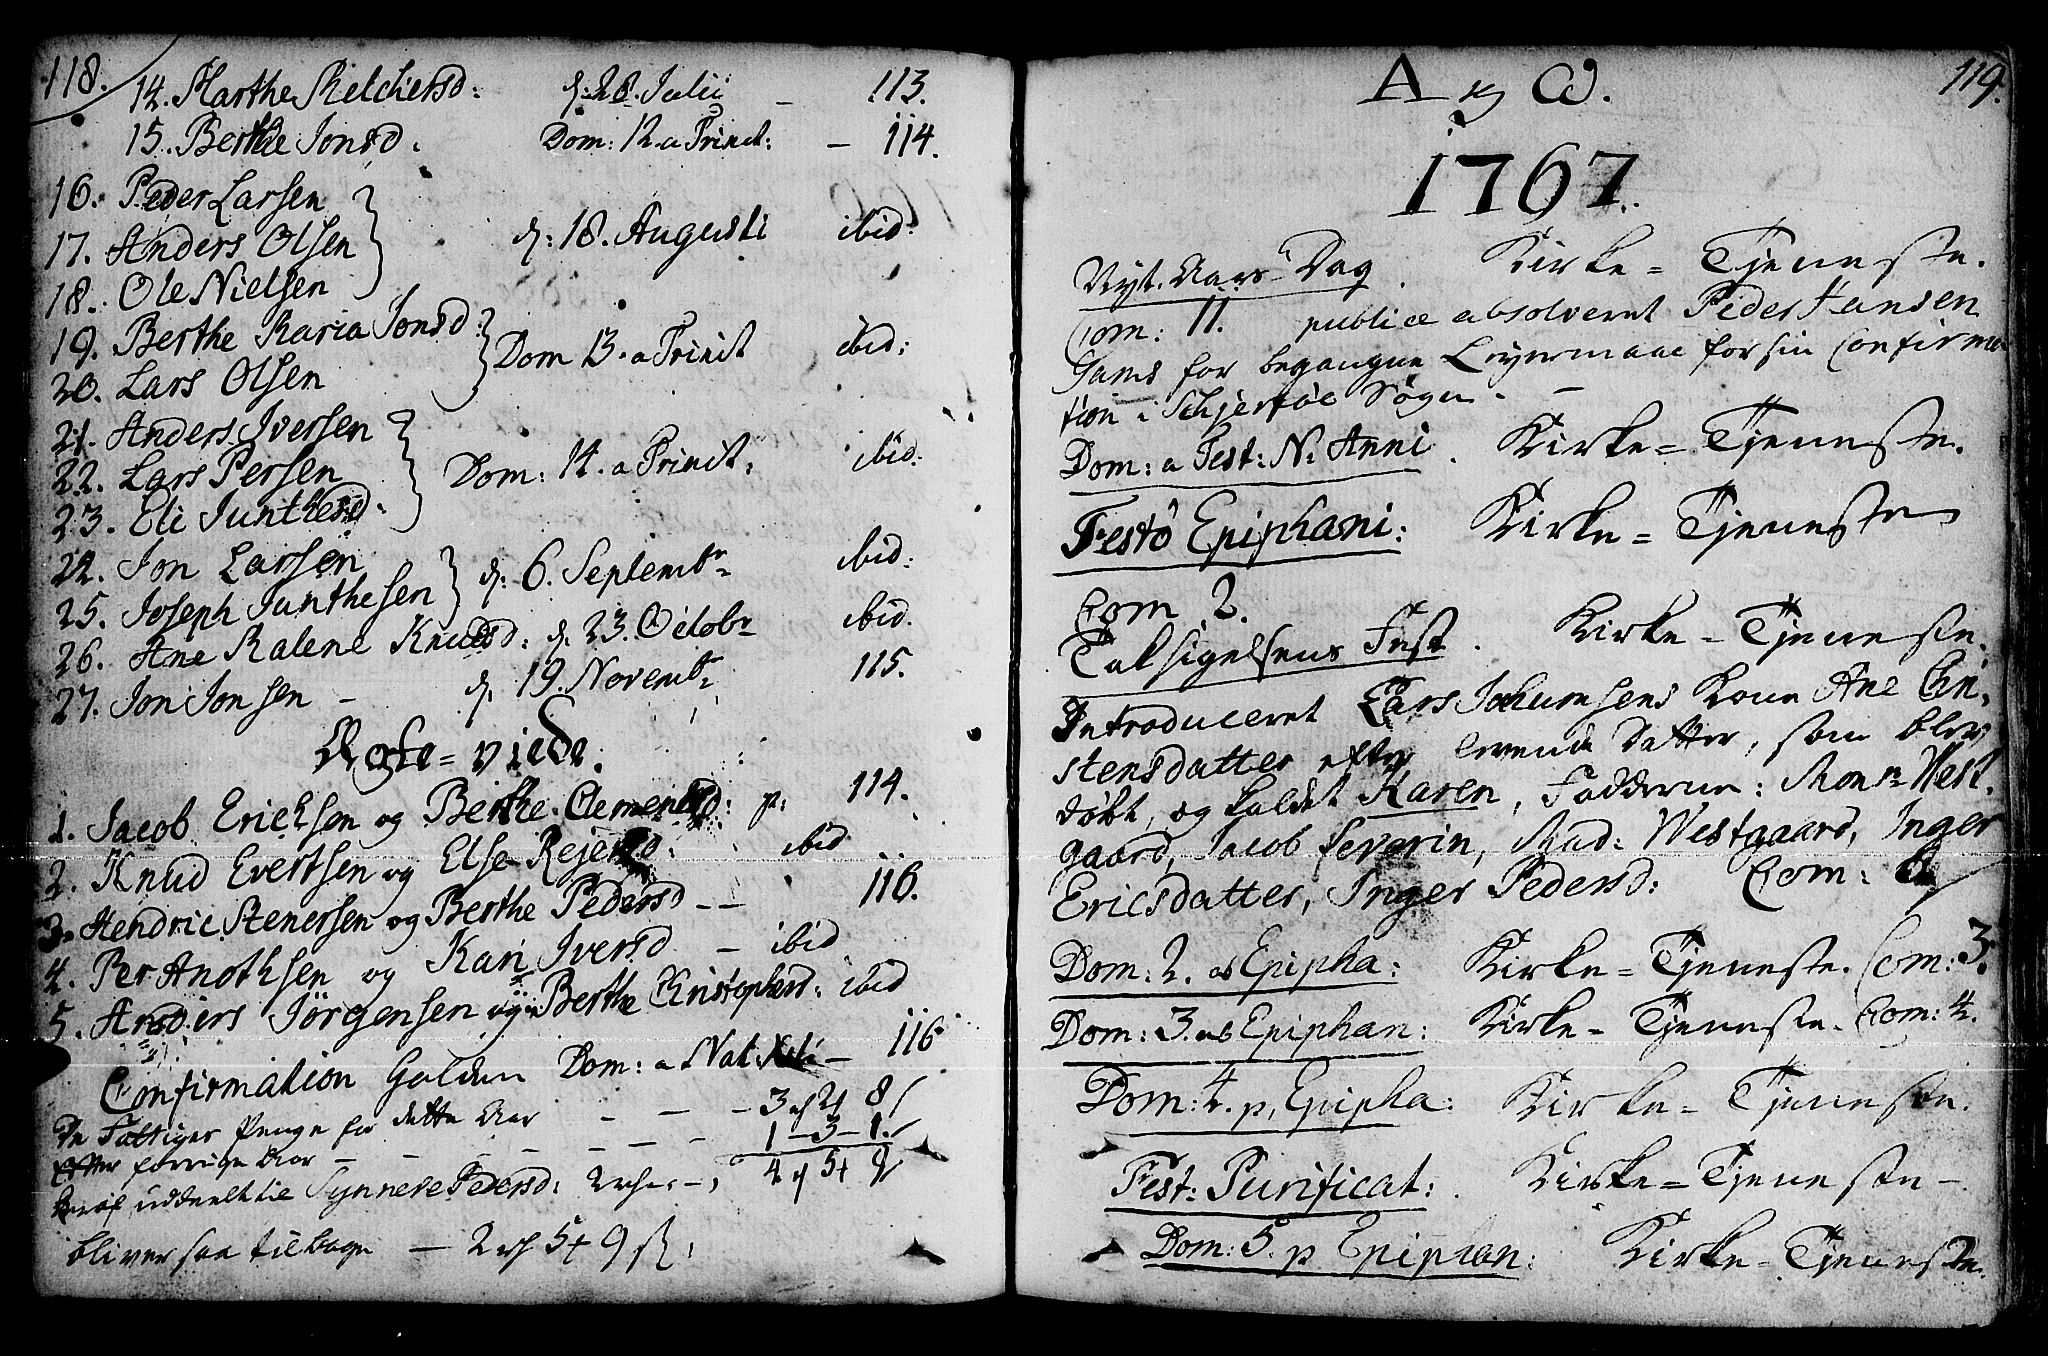 118.
14. Marthe Melchersd: d: 28. Julii – 113.
15. Berthe Jonsd: Dom: 12. a Trinit: – 114.
16. Peder Larsen
17. Anders Olsen d: 18. Augusti ibid:
18. Ole Nielsen
19. Berthe Maria Jonsd: Dom 13. a Trinit ibid:
20. Lars Olsen
21. Anders Iversen
22. Lars Persen Dom: 14. a Trinit: ibid:
23. Eli Junthesd:
24. Jon Larsen
25. Joseph Junthesen d: 6. Septembr ibid:
26. Ane Malene Knudsd: d. 23. Octobr ibid.
27. Jon Jonsen – d. 19. Novembr 115.
Ægte-viede.
1. Jacob Erichsen og Berthe Clementsd: p: 114.
2. Knud Evertsen og Else Rejersd: ibid
3. Hendric Stenersen og Berthe Pedersd – – 116.
4. Per Anothsen og Kari Iversd – ibid
5. Anders Jörgensen og Berthe Christophersd: ibid
Confirmation holden Dom: a Nat: Xsti – 116
De Fattiges Penge for dette Aar – – – 3 24 8
Efter forrige Aar – – – – – – 1 – 3 – 1.
4 54 9
Deraf uddeelt til Synneve Pedersd: 2 – ,
bliver saa tilbage – 2 54 9 ß:
119.
A og Ω.
1767.
Nyt-Aars-Dag. Kirke-Tjeneste.
Com: 11. publice absolveret Peder Hansen
Gams for begangne Leyermaal for sin Confirma-
tion i Schjertöe Sogn. –
Dom: a Fest: N: Anni. Kirke-Tjeneste.
Festo Epiphani: Kirke-Tjeneste
Com 2.
Taksigelsens Fest. Kirke-Tjeneste.
Introduceret Lars Jochumsens Kone Ane Chri-
stensdatter efter levende Datter, som blev
döbt, og kaldet Karen, Fadderne: Monsr West-
gaard, Jacob Severin, Mad: Westgaard, Inger
Ericsdatter, Inger Pedersd: Com:
Dom: 2. ab Epipha: Kirke-Tjeneste. Com: 3.
Dom: 3. ab Epiphan: Kirke-Tjeneste. Com: 4.
Dom: 4. p, Epipha: Kirke-Tjeneste.
Fest: Purificat: Kirke-Tjeneste –
Dom: 5. p Epiphan: Kirke-Tjeneste.